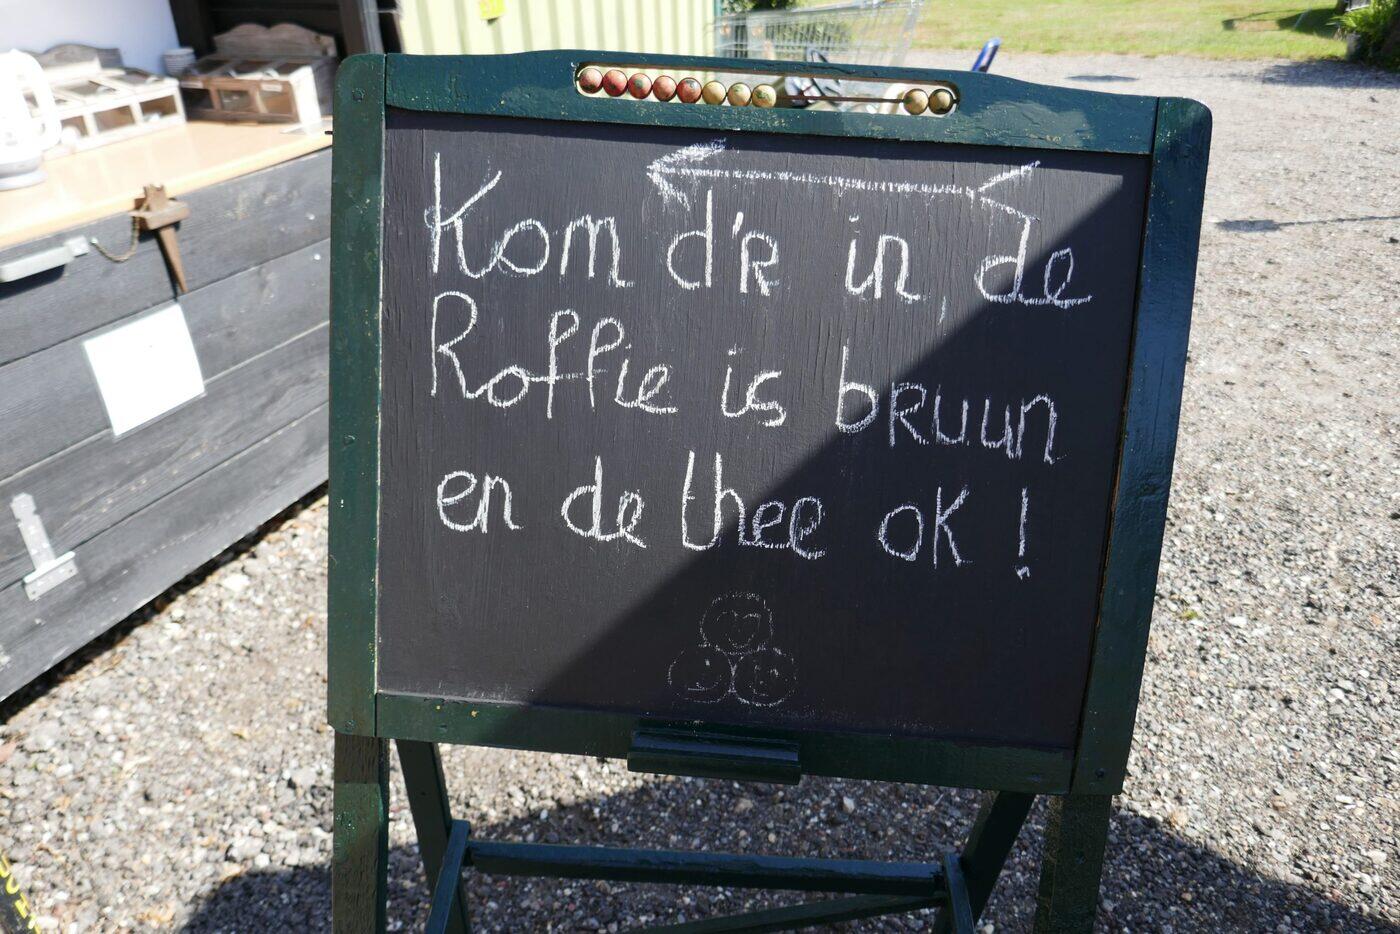 Kom d'r in, de
Roffie is bruun
en de thee ok!